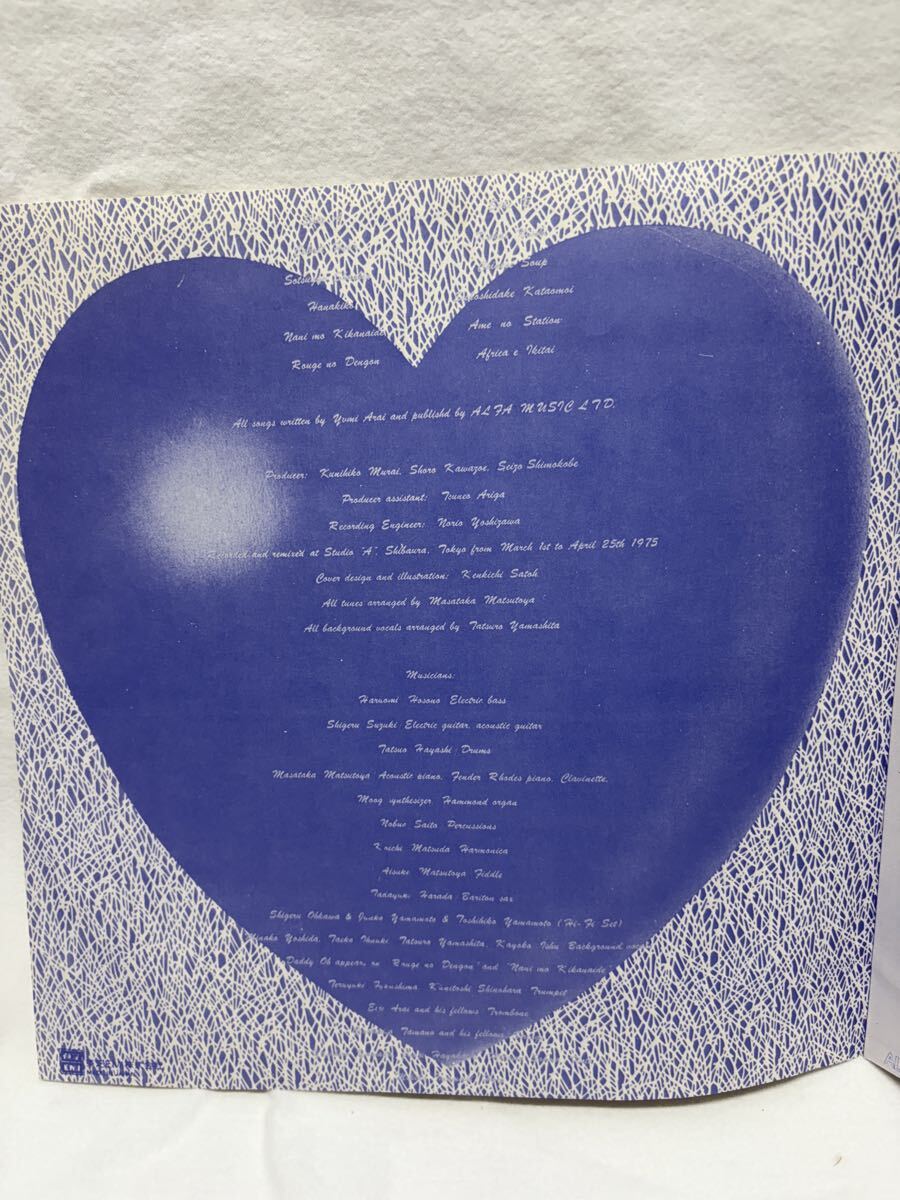 Soup
Hanakiko
Kataomoi
Nani mo Kikanaide
Ame no Station
Rouge no Dengon
Africa e Ikitai
All songs written by Yumi Arai and publishd by ALFA MUSIC LTD.
Producer: Kunihiko Murai, Shoro Kawazoe, Seizo Shimokobe
Producer assistant: Tsuneo Ariga
Recording Engineer: Norio Yoshizawa
Recorded and remixed at Studio "A", Shibaura, Tokyo from March 1st to April 25th 1975
Cover design and illustration: Kenkichi Satoh
All tunes arranged by Masataka Matsutoya
All background vocals arranged by Tatsuro Yamashita
Musicians:
Haruomi Hosono Electric bass
Shigeru Suzuki: Electric guitar, acoustic guitar
Tatsuo Hayashi: Drums
Masataka Matsutoya Acoustic piano, Fender Rhodes piano, Clavinette,
Moog synthesizer, Hammond organ
Nobuo Saito Percussions
Koichi Matsuda Harmonica
Aisuke Matsutoya Fiddle
Tadayuki Harada: Bariton sax
Shigeru Ohkawa & Junko Yamamoto & Toshihiko Yamamoto (Hi-Fi Set)
Minako Yoshida, Taeko Ohnuki, Tatsuro Yamashita, Kayoko Ishu Background
Daddy Oh appear on "Rouge no Dengon" and "Nani mo Kikanaide"
Teruyuki Fukushima, Kunitoshi Shinohara Trumpet
Eiji Arai and his fellows Trombone
Tamano and his fellows
EMI